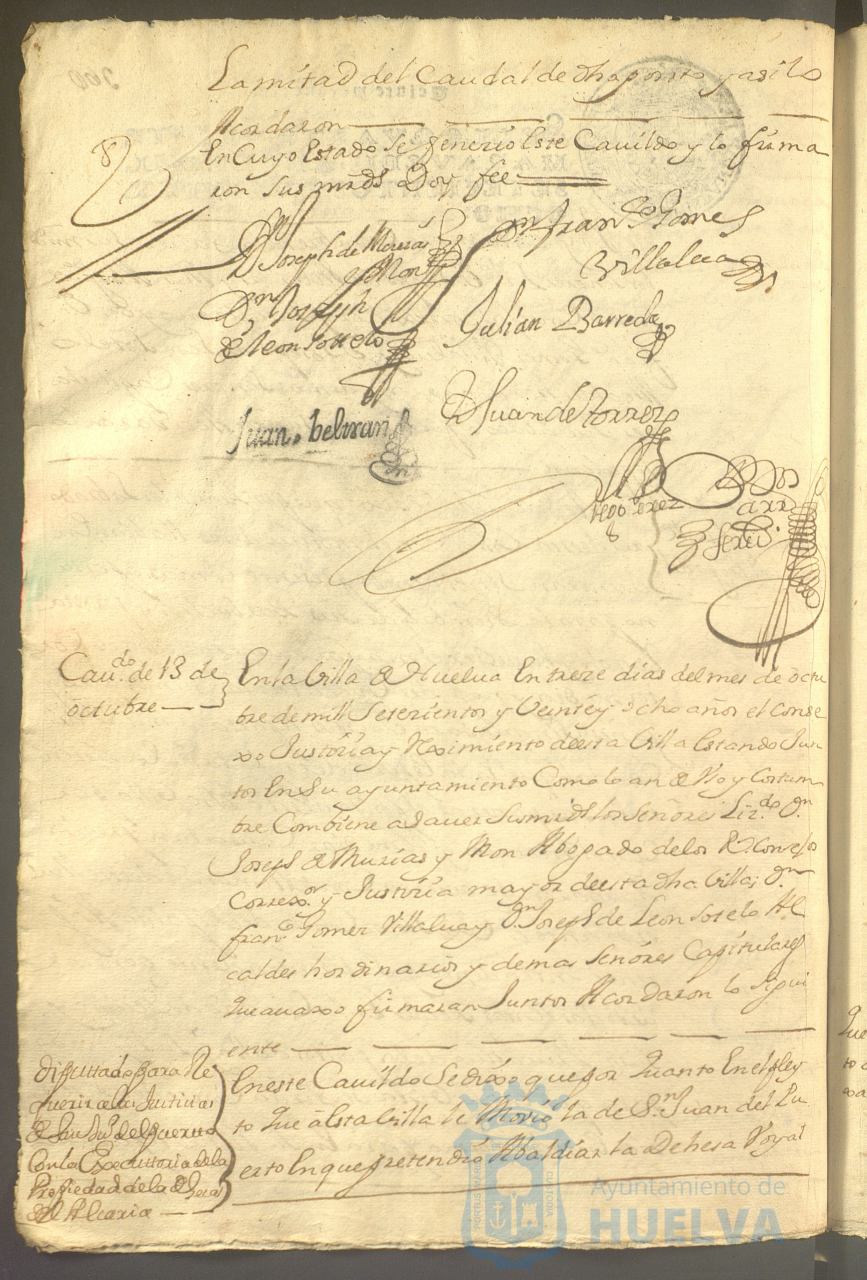 La mitad del Caudal de dho posito y asi lo
Acordaron
En Cuyo Estado se fenecio Este Cavildo y lo firma
ron sus mrds Doy fee
Dn Joseph de Murias
y Mon
Dn Fran.co Gomes
Villalua
Dn Joseph
de leon sottelo
Julian Barreda
Juan. beltran
D Juan de Torres
Cau.do de 13 de
octubre
En la Villa de Huelua En treze dias del mes de octu
bre de mill Setezientos y Veinte y ocho años el Conse
xo Justizia y Reximiento de esta Villa Estando Jun
tos En Su ayuntamiento Como lo an de Vso y Costum
bre Combiene a sauer Sus mrds los Señores Liz.do D.n
Joseph de Murias y Mon Abogado de los R.s Consejos
Correx.or y Justizia mayor de esta dha Villa; D.n
fran.co Gomez Villalua y D.n Joseph de Leon sotelo Al
caldes hordinarios y demas Señores Capitulares
que auaxo firmaran Juntos Acordaron lo sigui
ente
diputado para Re
querir a las Justicias
de San Ju.o del puertto
Con la Executtoria de la
Propiedad de la dehesa
del Alcaria
En este Cavildo Se dixo que por quanto En el pley
to que a Esta Villa le Movio la de S.n Juan del Pu
erto En que pretendio Abaldiar la Dehesa Voyal
Ayuntamiento de
HUELVA